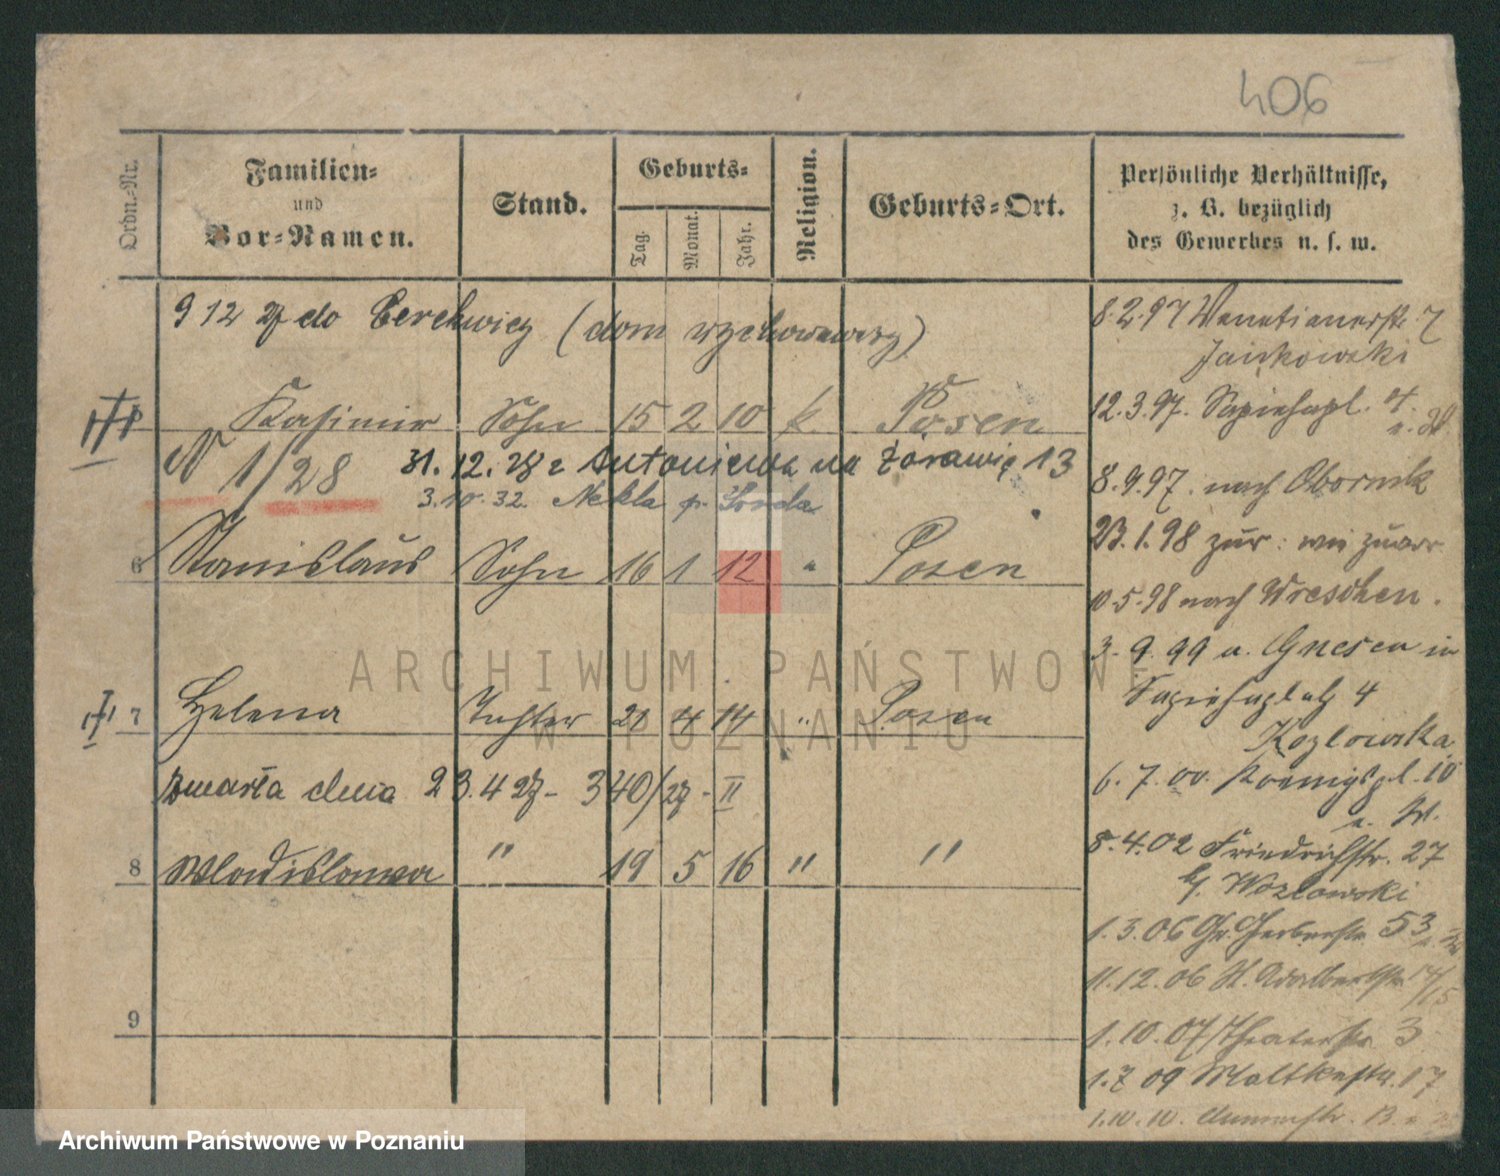 406
Ordn.-Nr.
Familien-
und
Vor-Namen.
Stand.
Geburts-
Tag.
Monat.
Jahr.
Religion.
Geburts-Ort.
Persönliche Verhältnisse,
z. B. bezüglich
des Gewerbes u. s. w.
9 12 27 do Cerekwicy (dom wychowawczy)
Kasimir Sohn 15 2 10 k. Posen
N 1/28 31. 12. 28 z Antoniewa na Żórawią 13
3.10.32. Nekla p. Środa
6 Stanislaus Sohn 16 1 12 " Posen
7 Helena Tochter 21 4 14 " Posen
zmarła dnia 23.4 27 - 340/27 - II
8 Wladislawa " 19 5 16 " "
9
8.2.97 Venetianerstr. 7
Jankowski
12.3.97. Sapiehapl. 4.
8.9.97. nach Obornik
23.1.98 zur: wie zuvor
10.5.98 nach Wreschen.
3.9.99 a. Gnesen in
Sapiehaplatz 4
Kozlowska
6.7.00. Koenigspl. 10
8.4.02 Friedrichstr. 27
b/ Kozlowski
1.3.06 Gr. Gerberstr. 53
11.12.06 St. Adalbertstr. 14/15
1.10.07 Theaterstr. 3
1.7.09 Moltkestr. 17
1.10.10.
ARCHIWUM PAŃSTWOWE
W POZNANIU
Archiwum Państwowe w Poznaniu